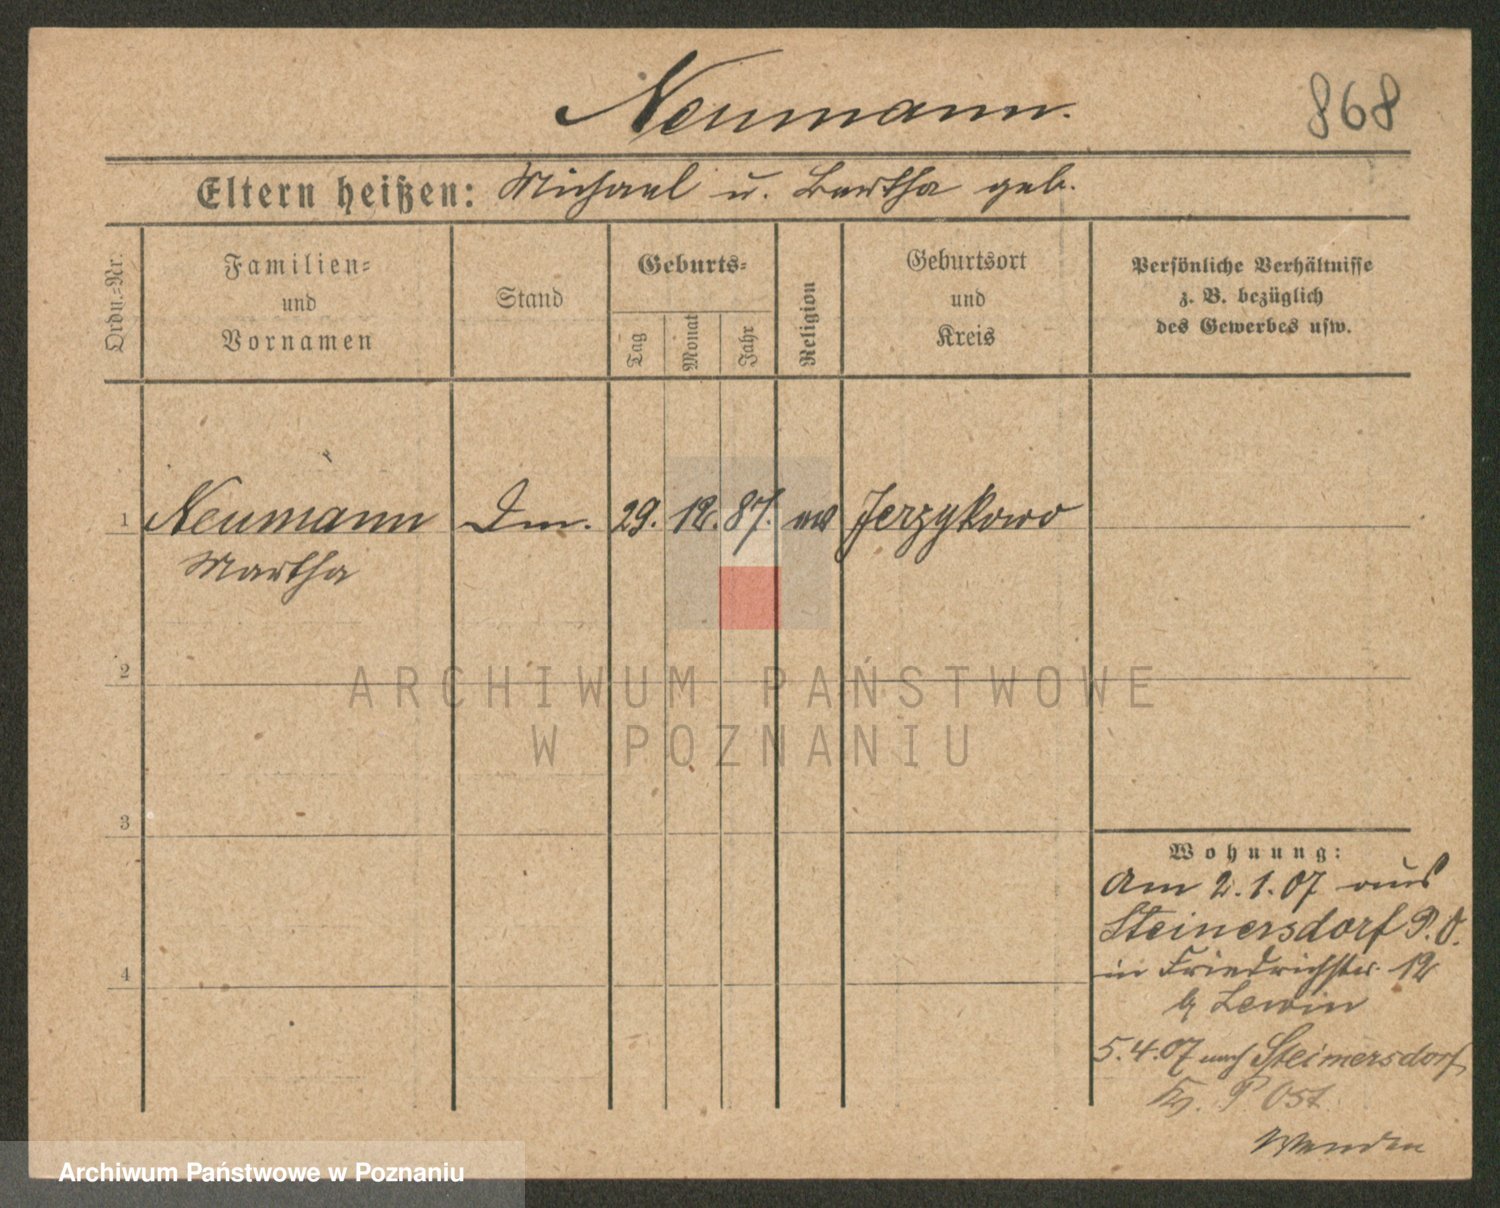 Neumann.
868
Eltern heißen: Michael u. Bertha geb.
Ordn.-Nr.
Familien-
und
Vornamen
Stand
Geburts-
Tag
Monat
Jahr
Religion
Geburtsort
und
Kreis
Persönliche Verhältnisse
z. B. bezüglich
des Gewerbes usw.
1 Neumann 29. 12. 87. ev Jerzykowo
Martha
2
3
4
Wohnung:
Am 2.1.07 aus
Steinersdorf P.O.
in Friedrichstr. 12
b Lewin
5.4.07 nach Steinersdorf
Kr. P Ost
Wenden
ARCHIWUM PAŃSTWOWE
W POZNANIU
Archiwum Państwowe w Poznaniu